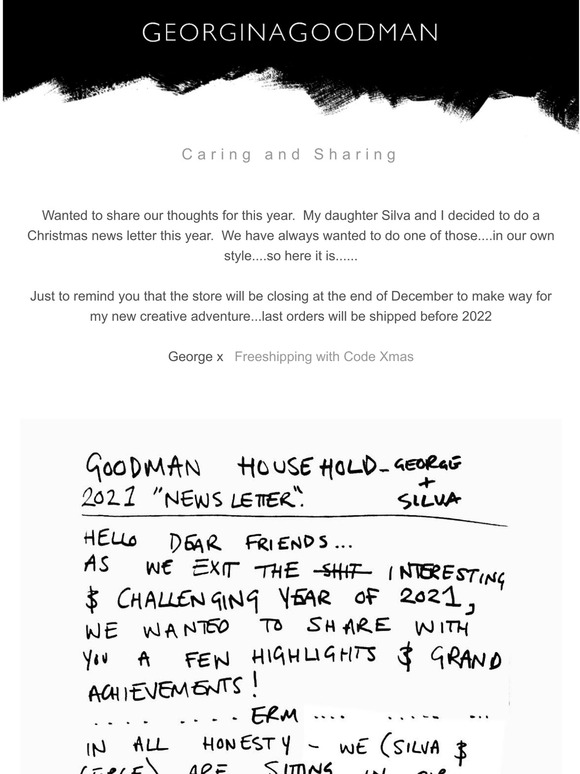 GEORGINAGOODMAN
Caring and Sharing
Wanted to share our thoughts for this year.  My daughter Silva and I decided to do a
Christmas news letter this year.  We have always wanted to do one of those....in our own
style....so here it is......
Just to remind you that the store will be closing at the end of December to make way for
my new creative adventure...last orders will be shipped before 2022
George x   Freeshipping with Code Xmas
GOODMAN HOUSEHOLD - GEORGE
+
2021 "NEWS LETTER". SILVA
HELLO DEAR FRIENDS...
AS WE EXIT THE SHIT INTERESTING
& CHALLENGING YEAR OF 2021,
WE WANTED TO SHARE WITH
YOU A FEW HIGHLIGHTS & GRAND
ACHIEVEMENTS!
.... .... ERM .... ..... ...
IN ALL HONESTY - WE (SILVA &
GEORGE) ARE SITTING IN OUR